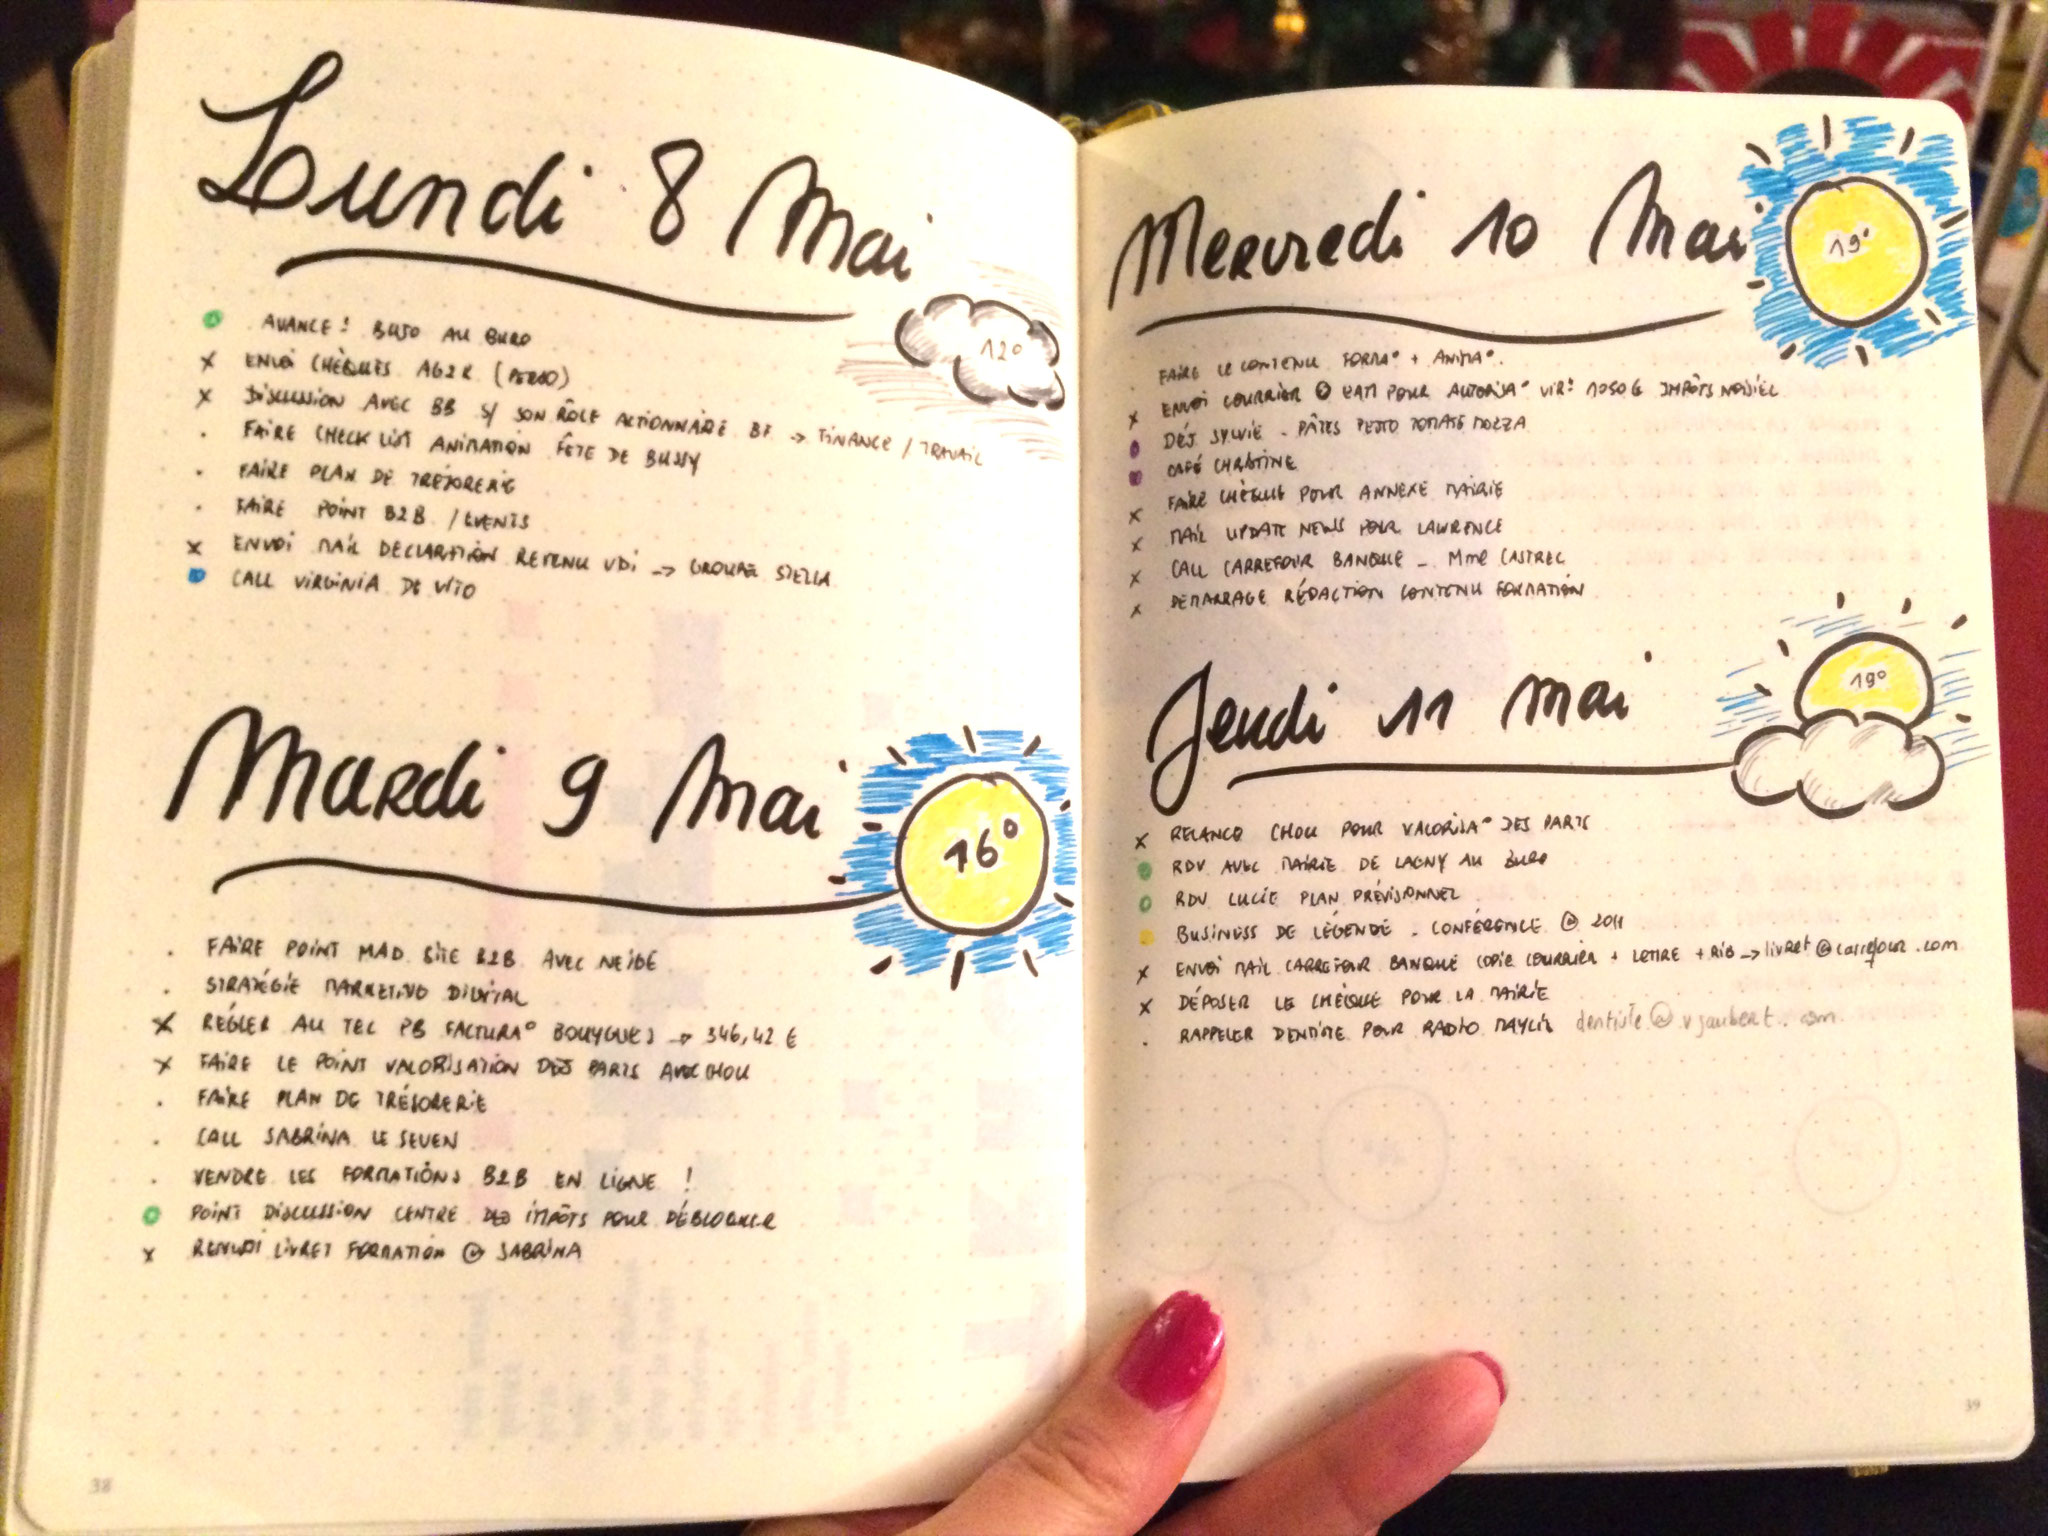 Lundi 8 Mai
12°
AVANCE! BUJO AU BURO
x ENVOI CHÈQUES AG2R (PERSO)
x DISCUSSION AVEC BB S/ SON RÔLE ACTIONNAIRE BF → FINANCE / TRAVAIL
. FAIRE CHECK LIST ANIMATION FÊTE DE BUSSY
. FAIRE PLAN DE TRÉSORERIE
. FAIRE POINT B2B / EVENTS
x ENVOI MAIL DECLARATION REVENU VDI → GROUPE STELLA
CALL VIRGINIA DE VITO
Mardi 9 Mai
16°
. FAIRE POINT MAD SITE B2B AVEC NEIDE
. STRATÉGIE MARKETING DIGITAL
x RÉGLER AU TEL PB FACTURA° BOUYGUES → 346,42 €
x FAIRE LE POINT VALORISATION DES PARTS AVEC CHOU
. FAIRE PLAN DE TRÉSORERIE
. CALL SABRINA LE SEVEN
. VENDRE LES FORMATIONS B2B EN LIGNE !
POINT DISCUSSION CENTRE DES IMPÔTS POUR DÉBLOQUER
x RENVOI LIVRET FORMATION @ SABRINA
38
Mercredi 10 Mai
19°
. FAIRE LE CONTENU FORMA° + ANIMA°.
x ENVOI COURRIER POUR AUTORISA° VIR! 1050 € IMPÔTS NOISIEL
DÉJ SYLVIE - PÂTES PESTO TOMATE MOZZA
CAFÉ CHRISTINE
x FAIRE CHÈQUE POUR ANNEXE MAIRIE
x MAIL UPDATE NEWS POUR LAWRENCE
x CALL CARREFOUR BANQUE - Mme CASTREC
x DEMARRAGE RÉDACTION CONTENU FORMATION
Jeudi 11 Mai
19°
x RELANCE CHOU POUR VALORISA° DES PARTS
RDV AVEC MAIRIE DE LAGNY AU BURO
RDV LUCIE PLAN PRÉVISIONNEL
BUSINESS DE LÉGENDE - CONFÉRENCE @ 20H
x ENVOI MAIL CARREFOUR BANQUE COPIE COURRIER + LETTRE + RIB → livret@carrefour.com
x DÉPOSER LE CHÈQUE POUR LA MAIRIE
. RAPPELER DENTISTE POUR RADIO MAYLIE dentiste@vjaubert.com
39